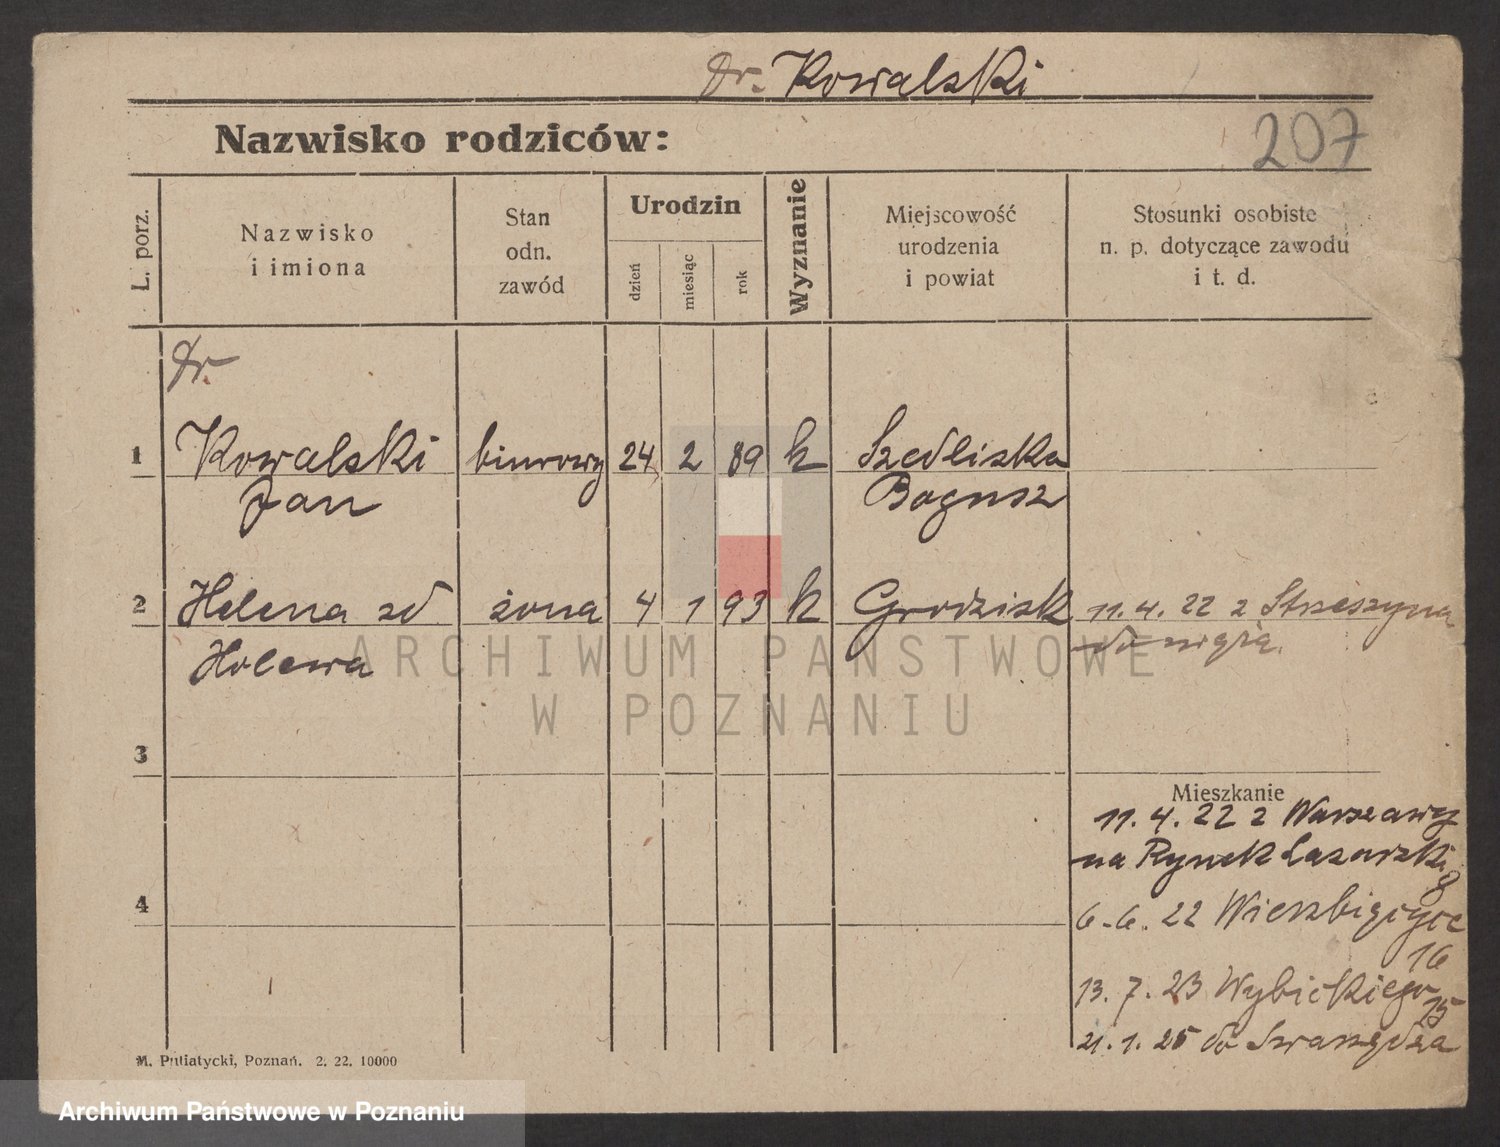 Dr. Kowalski
Nazwisko rodziców:
207
L. porz.
Nazwisko
i imiona
Stan
odn.
zawód
Urodzin
dzień
miesiąc
rok
Wyznanie
Miejscowość
urodzenia
i powiat
Stosunki osobiste
n. p. dotyczące zawodu
i t. d.
Dr.
1 Kowalski biurowy 24 2 89 k Szedliska
Jan Bogusz
2 Helena zd żona 4 1 93 k Grodzisk 11.4.22 z Strzeszyna
Holewa do męża.
ARCHIWUM PAŃSTWOWE
W POZNANIU
3
Mieszkanie
11.4.22 z Warszawy
na Rynek Lazarski
8
4
6.6.22 Wierzbięcice
16
13.7.23 Wybickiego 15
21.1.25 do Swarzędza
M. Putiatycki, Poznań. 2. 22. 10000
Archiwum Państwowe w Poznaniu